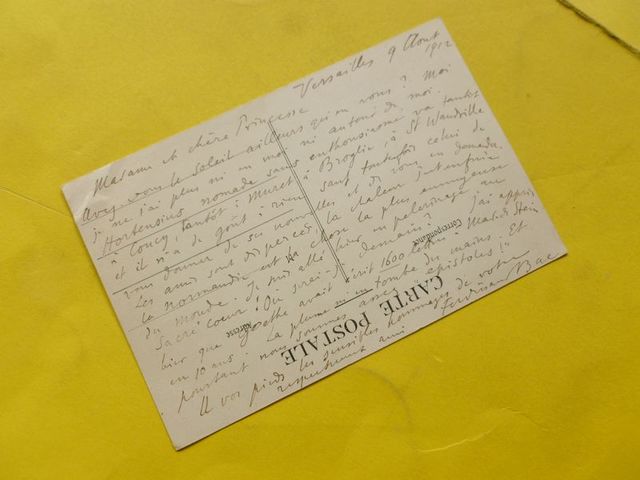 Versailles 9 Août
1912
Madame et chère Princesse
Avez-vous le soleil ailleurs qu'en vous? Moi
je ne l'ai plus ni en moi ni autour de moi.
Hortensius nomade sans enthousiasme va tantôt
à Coucy, tantôt à Muret, à Broglie, à St Wandrille
et il n'a de goût à rien sauf toutefois celui de
vous donner de ses nouvelles et de vous en demander
Les amis sont dispersés, la chaleur
la Normandie est la chose la plus ennuyeuse
du monde. Je suis allé hier en pelerinage au
Sacré Coeur! Où irai-je demain? J'ai appris
hier que Goethe avait écrit 1600 lettres à Mad. de Stein
en 10 ans. La plume m'en tombe des mains. Et
pourtant nous sommes assez épistoles!"
A vos pieds les sensibles hommages de votre
respectueux ami Ferdinand Bac
CARTE POSTALE
Correspondance
Adresse